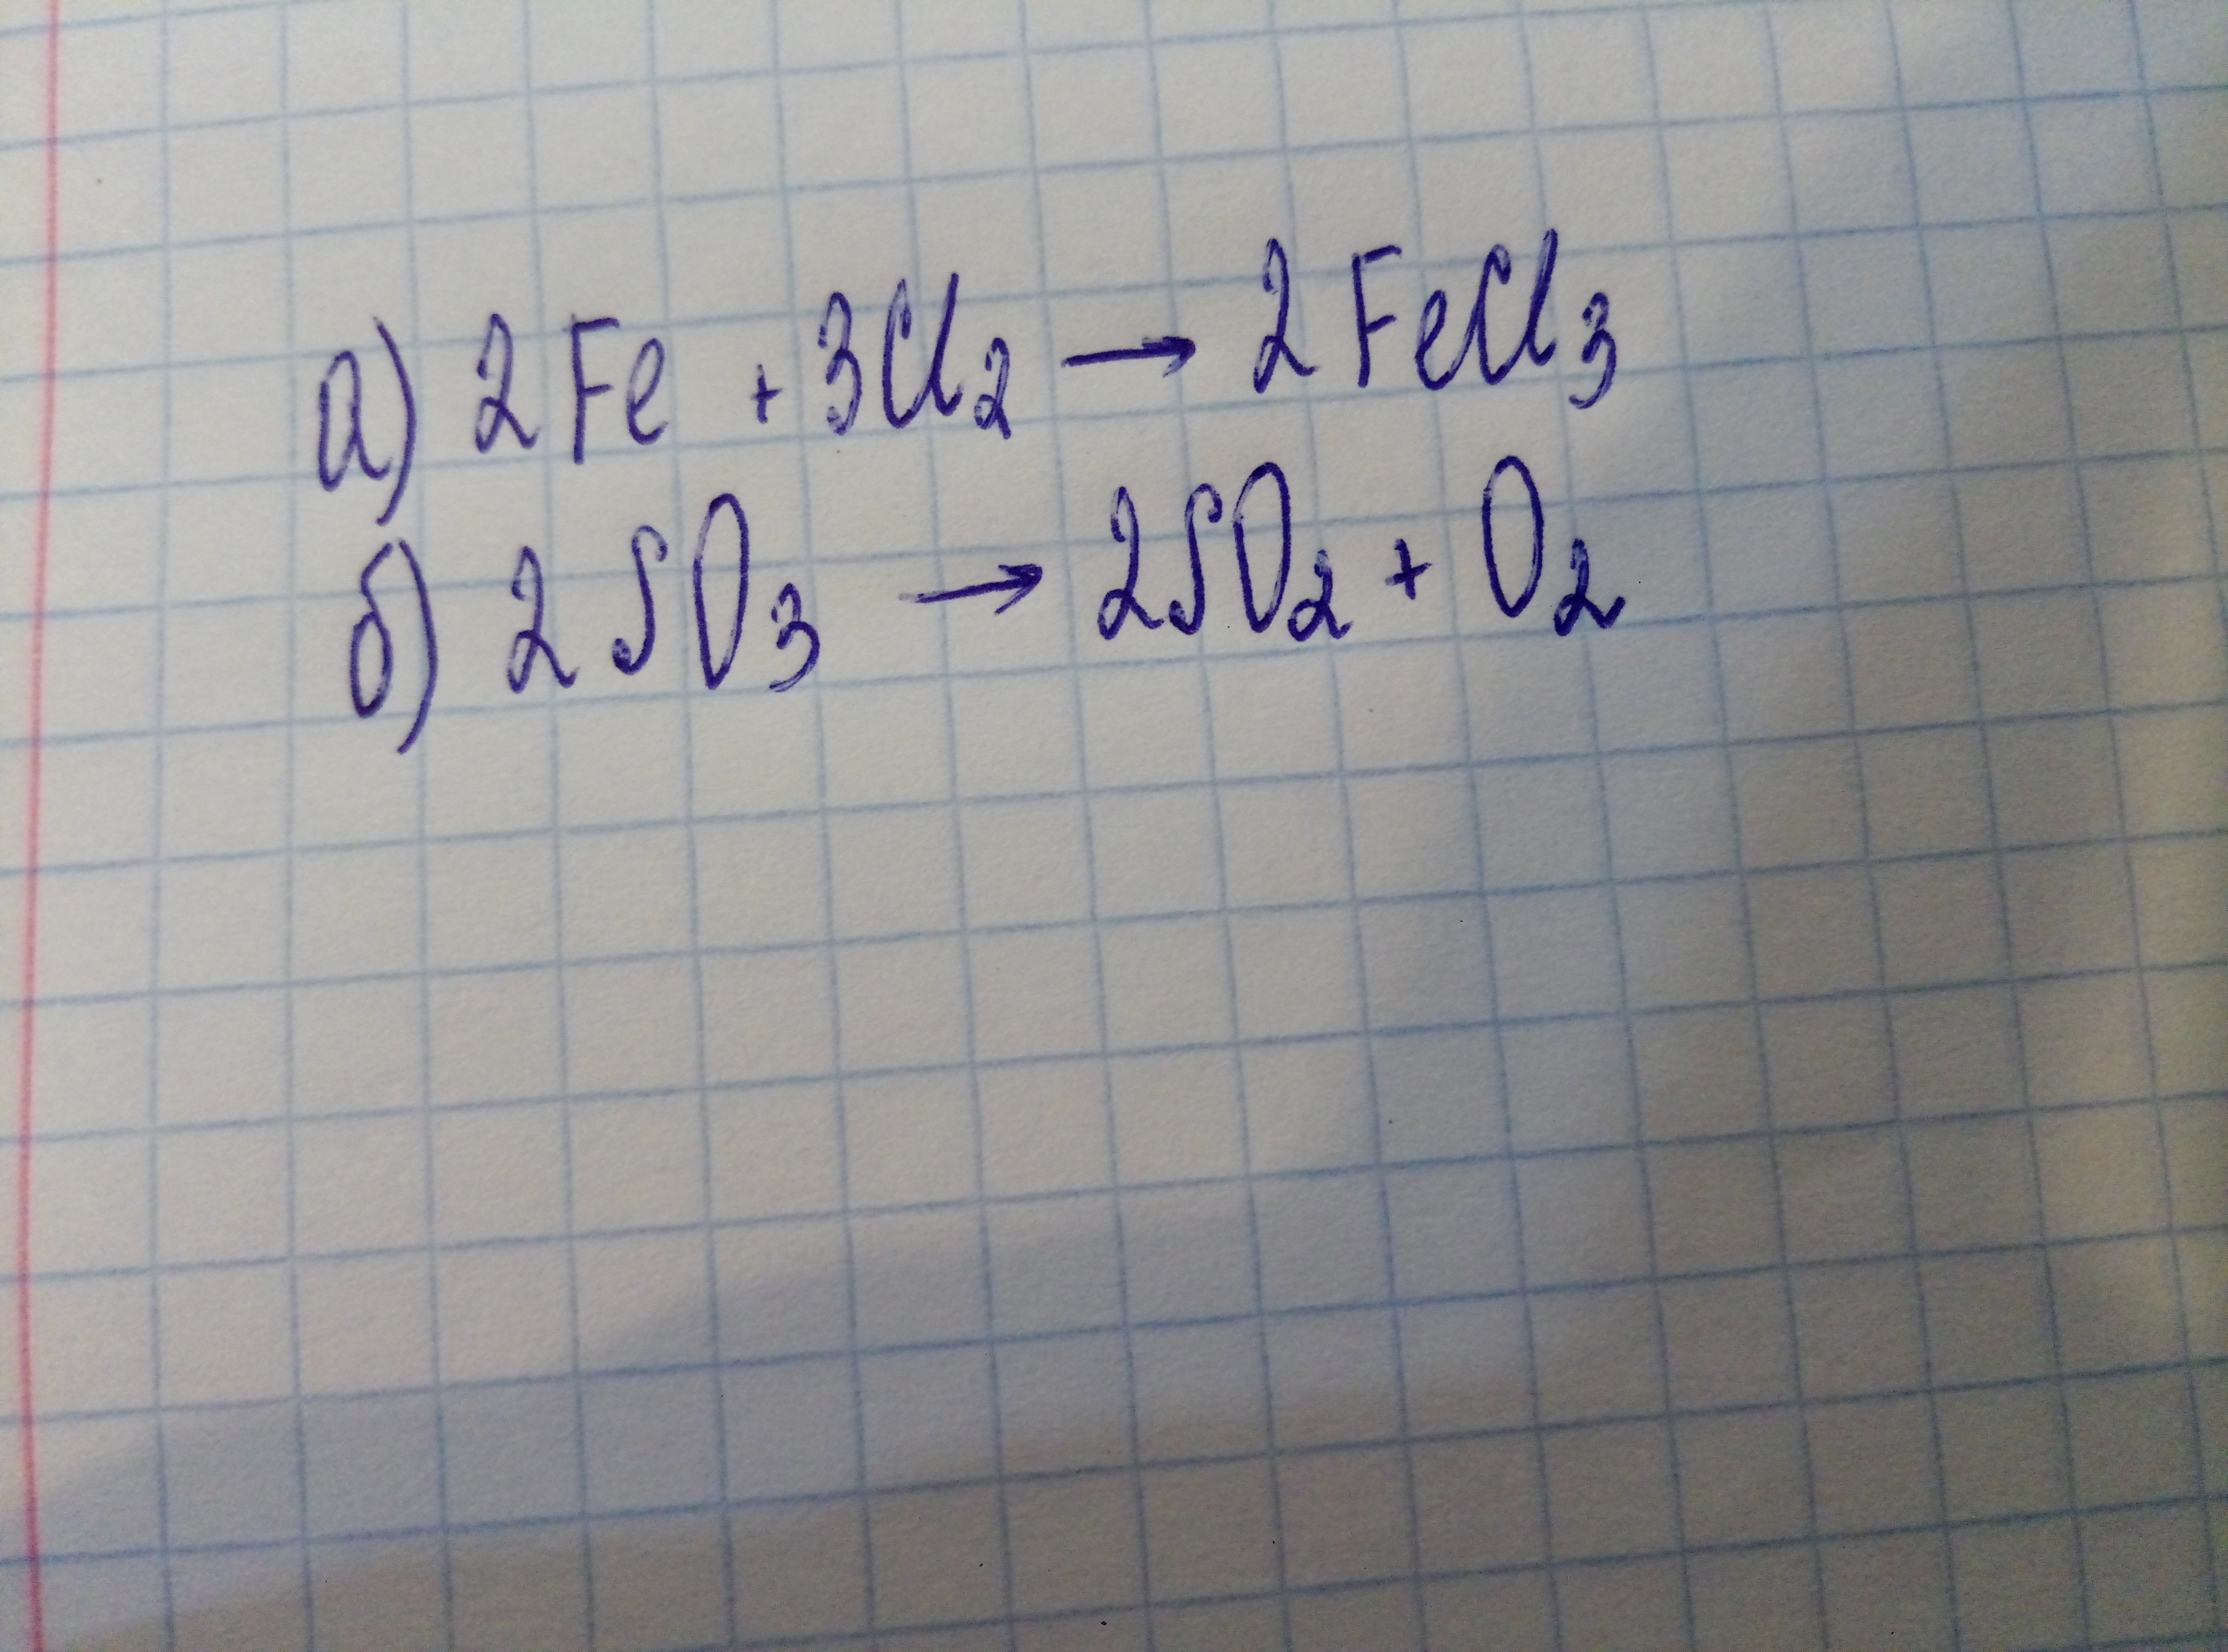 а) 2Fe + 3Cl₂ → 2FeCl₃
б) 2SO₃ → 2SO₂ + O₂